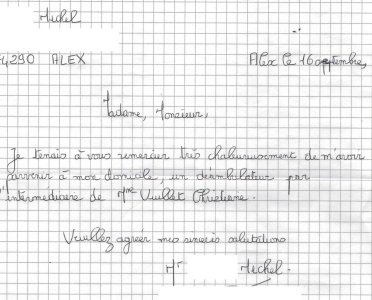 Michel
74290 ALEX
Alex le 16 septembre,
Madame, Monsieur,
Je tenais à vous remercier très chaleureusement de m'avoir
parvenir à mon domicile, un déambulateur par
l'intermédiaire de Mme Vuillet Christiane.
Veuillez agréer mes sincères salutations
Mr Michel.